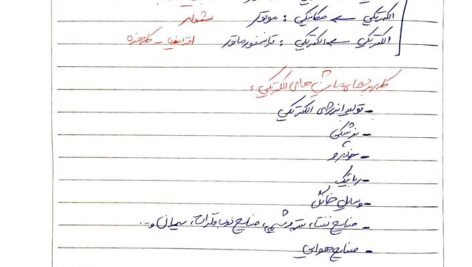 الکتریکی به مکانیکی : موتور سنکرون
الکتریکی به الکتریکی : ترانسفورماتور افزاینده - کاهنده
کاربردهای ماشین های الکتریکی :
- تولید انرژی الکتریکی
- پزشکی
- خودرو
- رباتیک
- وسایل خانگی
- صنایع نفت، پتروشیمی، صنایع ذوب فلزات، سیمان و...
- صنایع هوایی